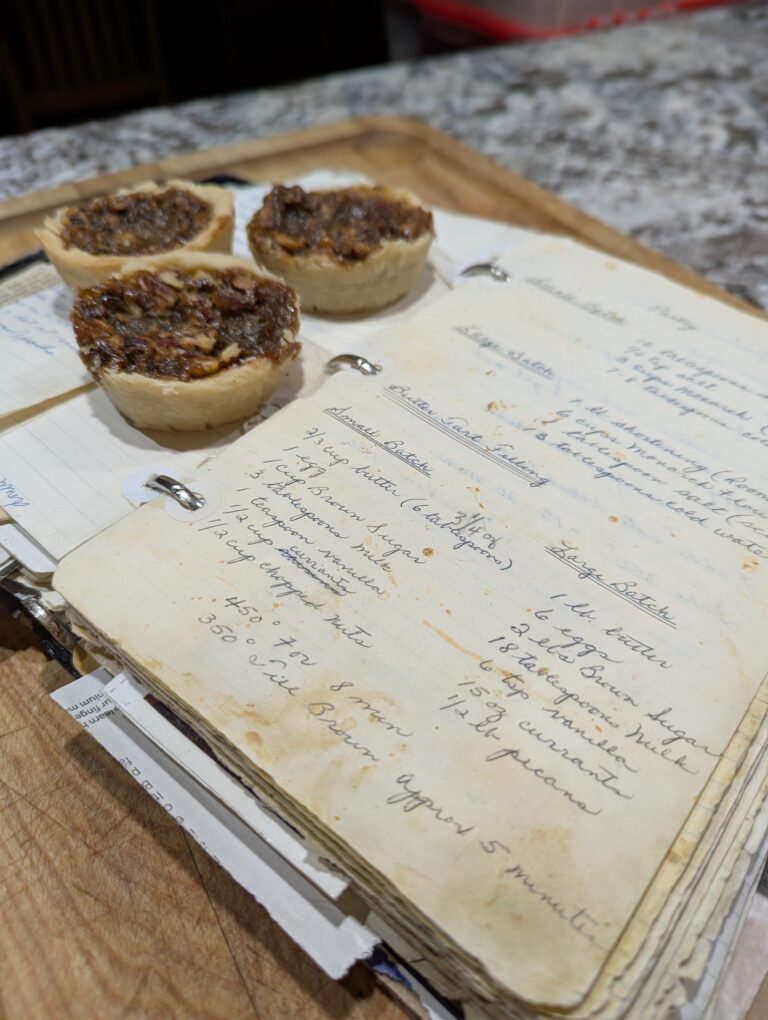 Pastry
Small Batch
tablespoons
tsp salt
cups monarch
tablespoons
Large Batch
1 lb shortening (room
6 cups monarch flour
1 tablespoon salt
18 tablespoons cold water
Butter Tart Filling
Small Batch
2/3 cup butter (6 tablespoons)
3/4 of
1 egg
1 cup Brown Sugar
3 tablespoons milk
1 teaspoon vanilla
1/2 cup currants
1/2 cup chopped nuts
450° For 8 min
350° Till Brown approx 5 minutes
Large Batch
1 lb. butter
6 eggs
2 lbs Brown Sugar
18 tablespoon milk
6 tsp vanilla
15 oz currants
1/2 lb pecans